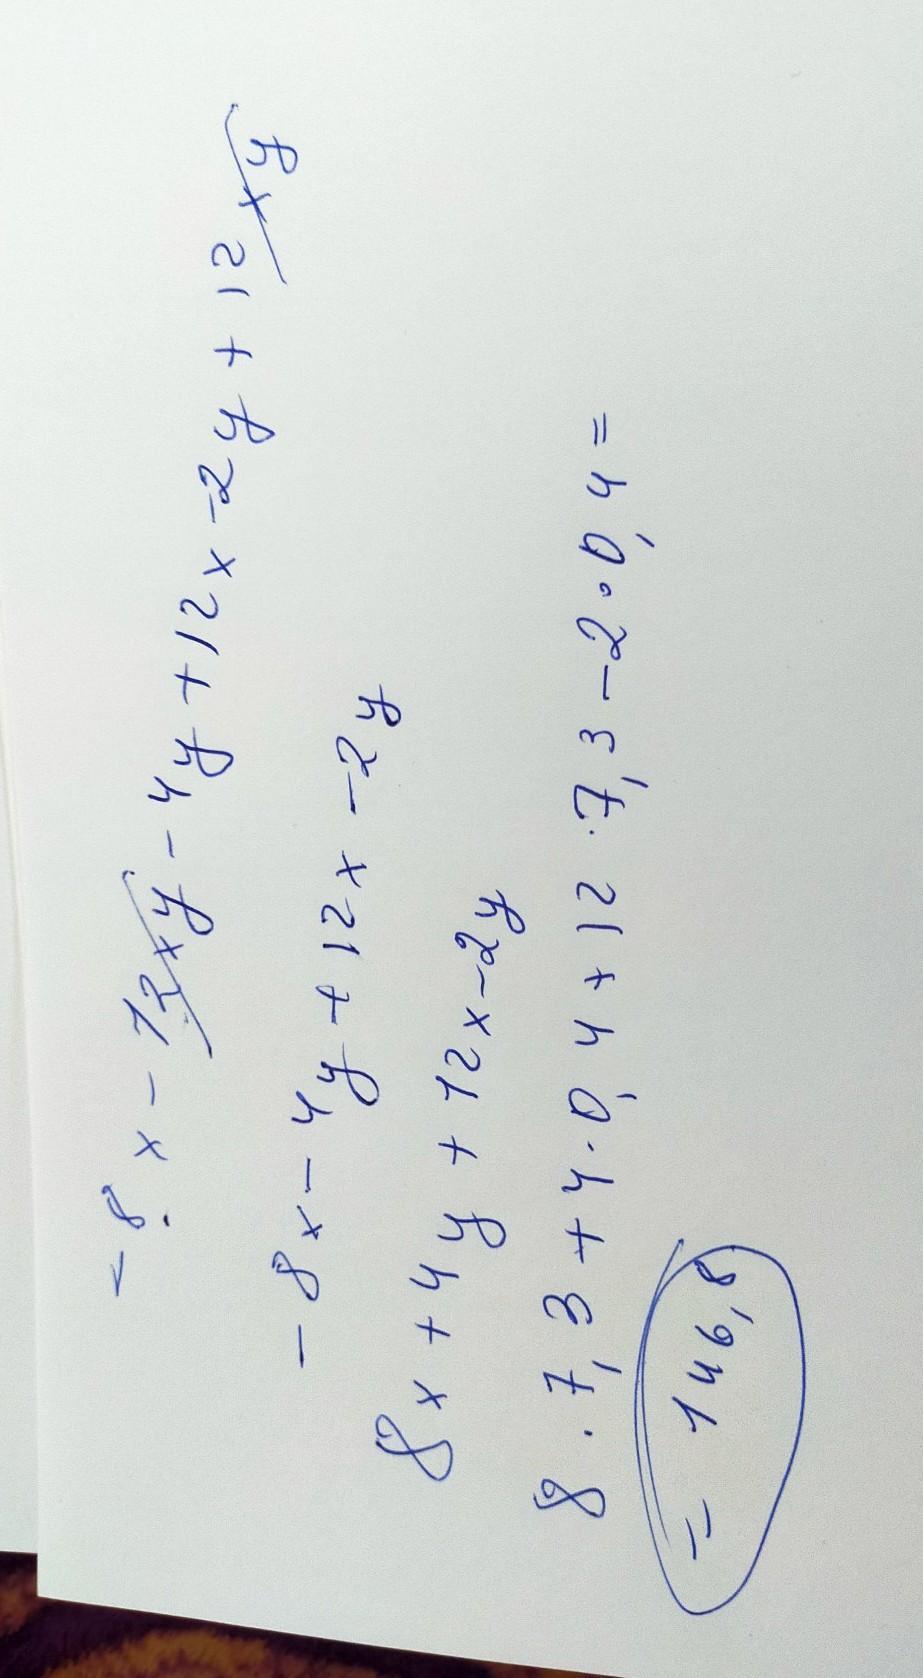 -8x - 12xy - 4y + 12x - 2y + 12xy
-8x - 4y + 12x - 2y
8x + 4y + 12x - 2y
8 · 7,3 + 4 · 0,4 + 12 · 7,3 - 2 · 0,4 =
= 146,8